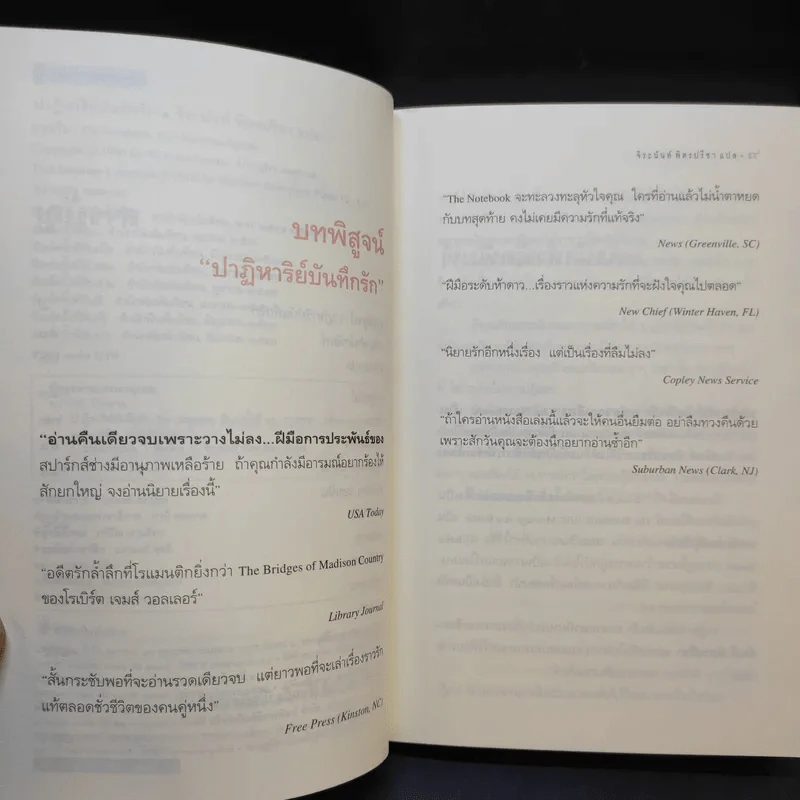 บทพิสูจน์
“ปาฏิหาริย์บันทึกรัก”
“อ่านคืนเดียวจบเพราะวางไม่ลง...ฝีมือการประพันธ์ของ
สปาร์กส์ช่างมีอานุภาพเหลือร้าย ถ้าคุณกำลังมีอารมณ์อยากร้องไห้
สักยกใหญ่ จงอ่านนิยายเรื่องนี้”
USA Today
“อดีตรักล้ำลึกที่โรแมนติกยิ่งกว่า The Bridges of Madison Country
ของโรเบิร์ต เจมส์ วอลเลอร์”
Library Journal
“สั้นกระชับพอที่จะอ่านรวดเดียวจบ แต่ยาวพอที่จะเล่าเรื่องราวรัก
แท้ตลอดชั่วชีวิตของคนคู่หนึ่ง”
Free Press (Kinston, NC)
จิระนันท์ พิตรปรีชา แปล •
“The Notebook จะทะลวงทะลุหัวใจคุณ ใครที่อ่านแล้วไม่น้ำตาหยด
กับบทสุดท้าย คงไม่เคยมีความรักที่แท้จริง”
News (Greenville, SC)
“ฝีมือระดับห้าดาว...เรื่องราวแห่งความรักที่จะฝังใจคุณไปตลอด”
New Chief (Winter Haven, FL)
“นิยายรักอีกหนึ่งเรื่อง แต่เป็นเรื่องที่ลืมไม่ลง”
Copley News Service
“ถ้าใครอ่านหนังสือเล่มนี้แล้วจะให้คนอื่นยืมต่อ อย่าลืมทวงคืนด้วย
เพราะสักวันคุณจะต้องนึกอยากอ่านซ้ำอีก”
Suburban News (Clark, NJ)